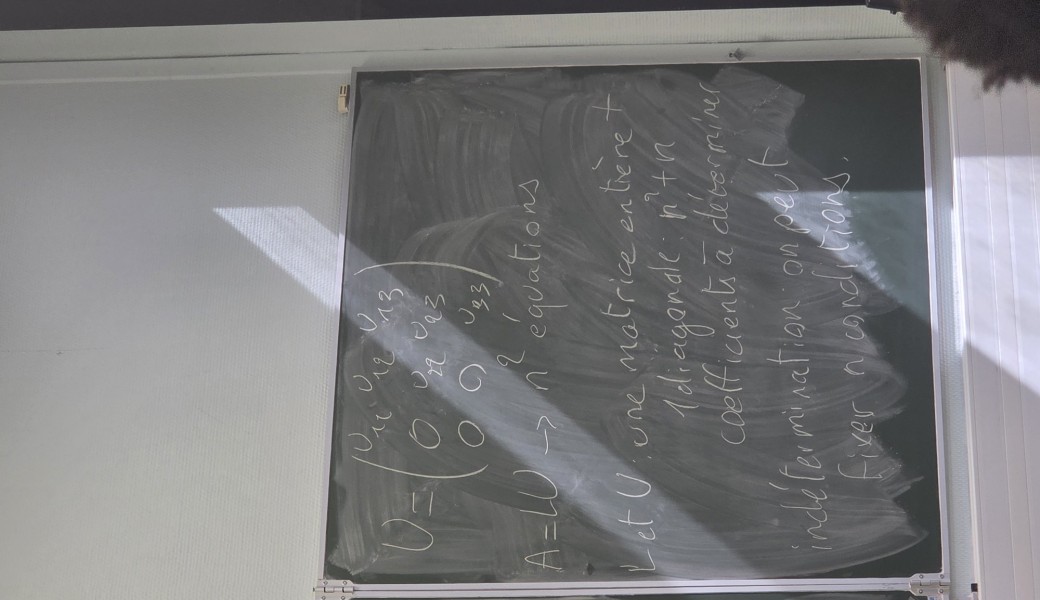 U = ( U11 U12 U13
0 U22 U23
0 0 U33 )
A = LU → n² équations
L et U : une matrice entière +
1 diagonale : n² + n
coefficients à déterminer
indétermination : on peut
fixer n conditions.